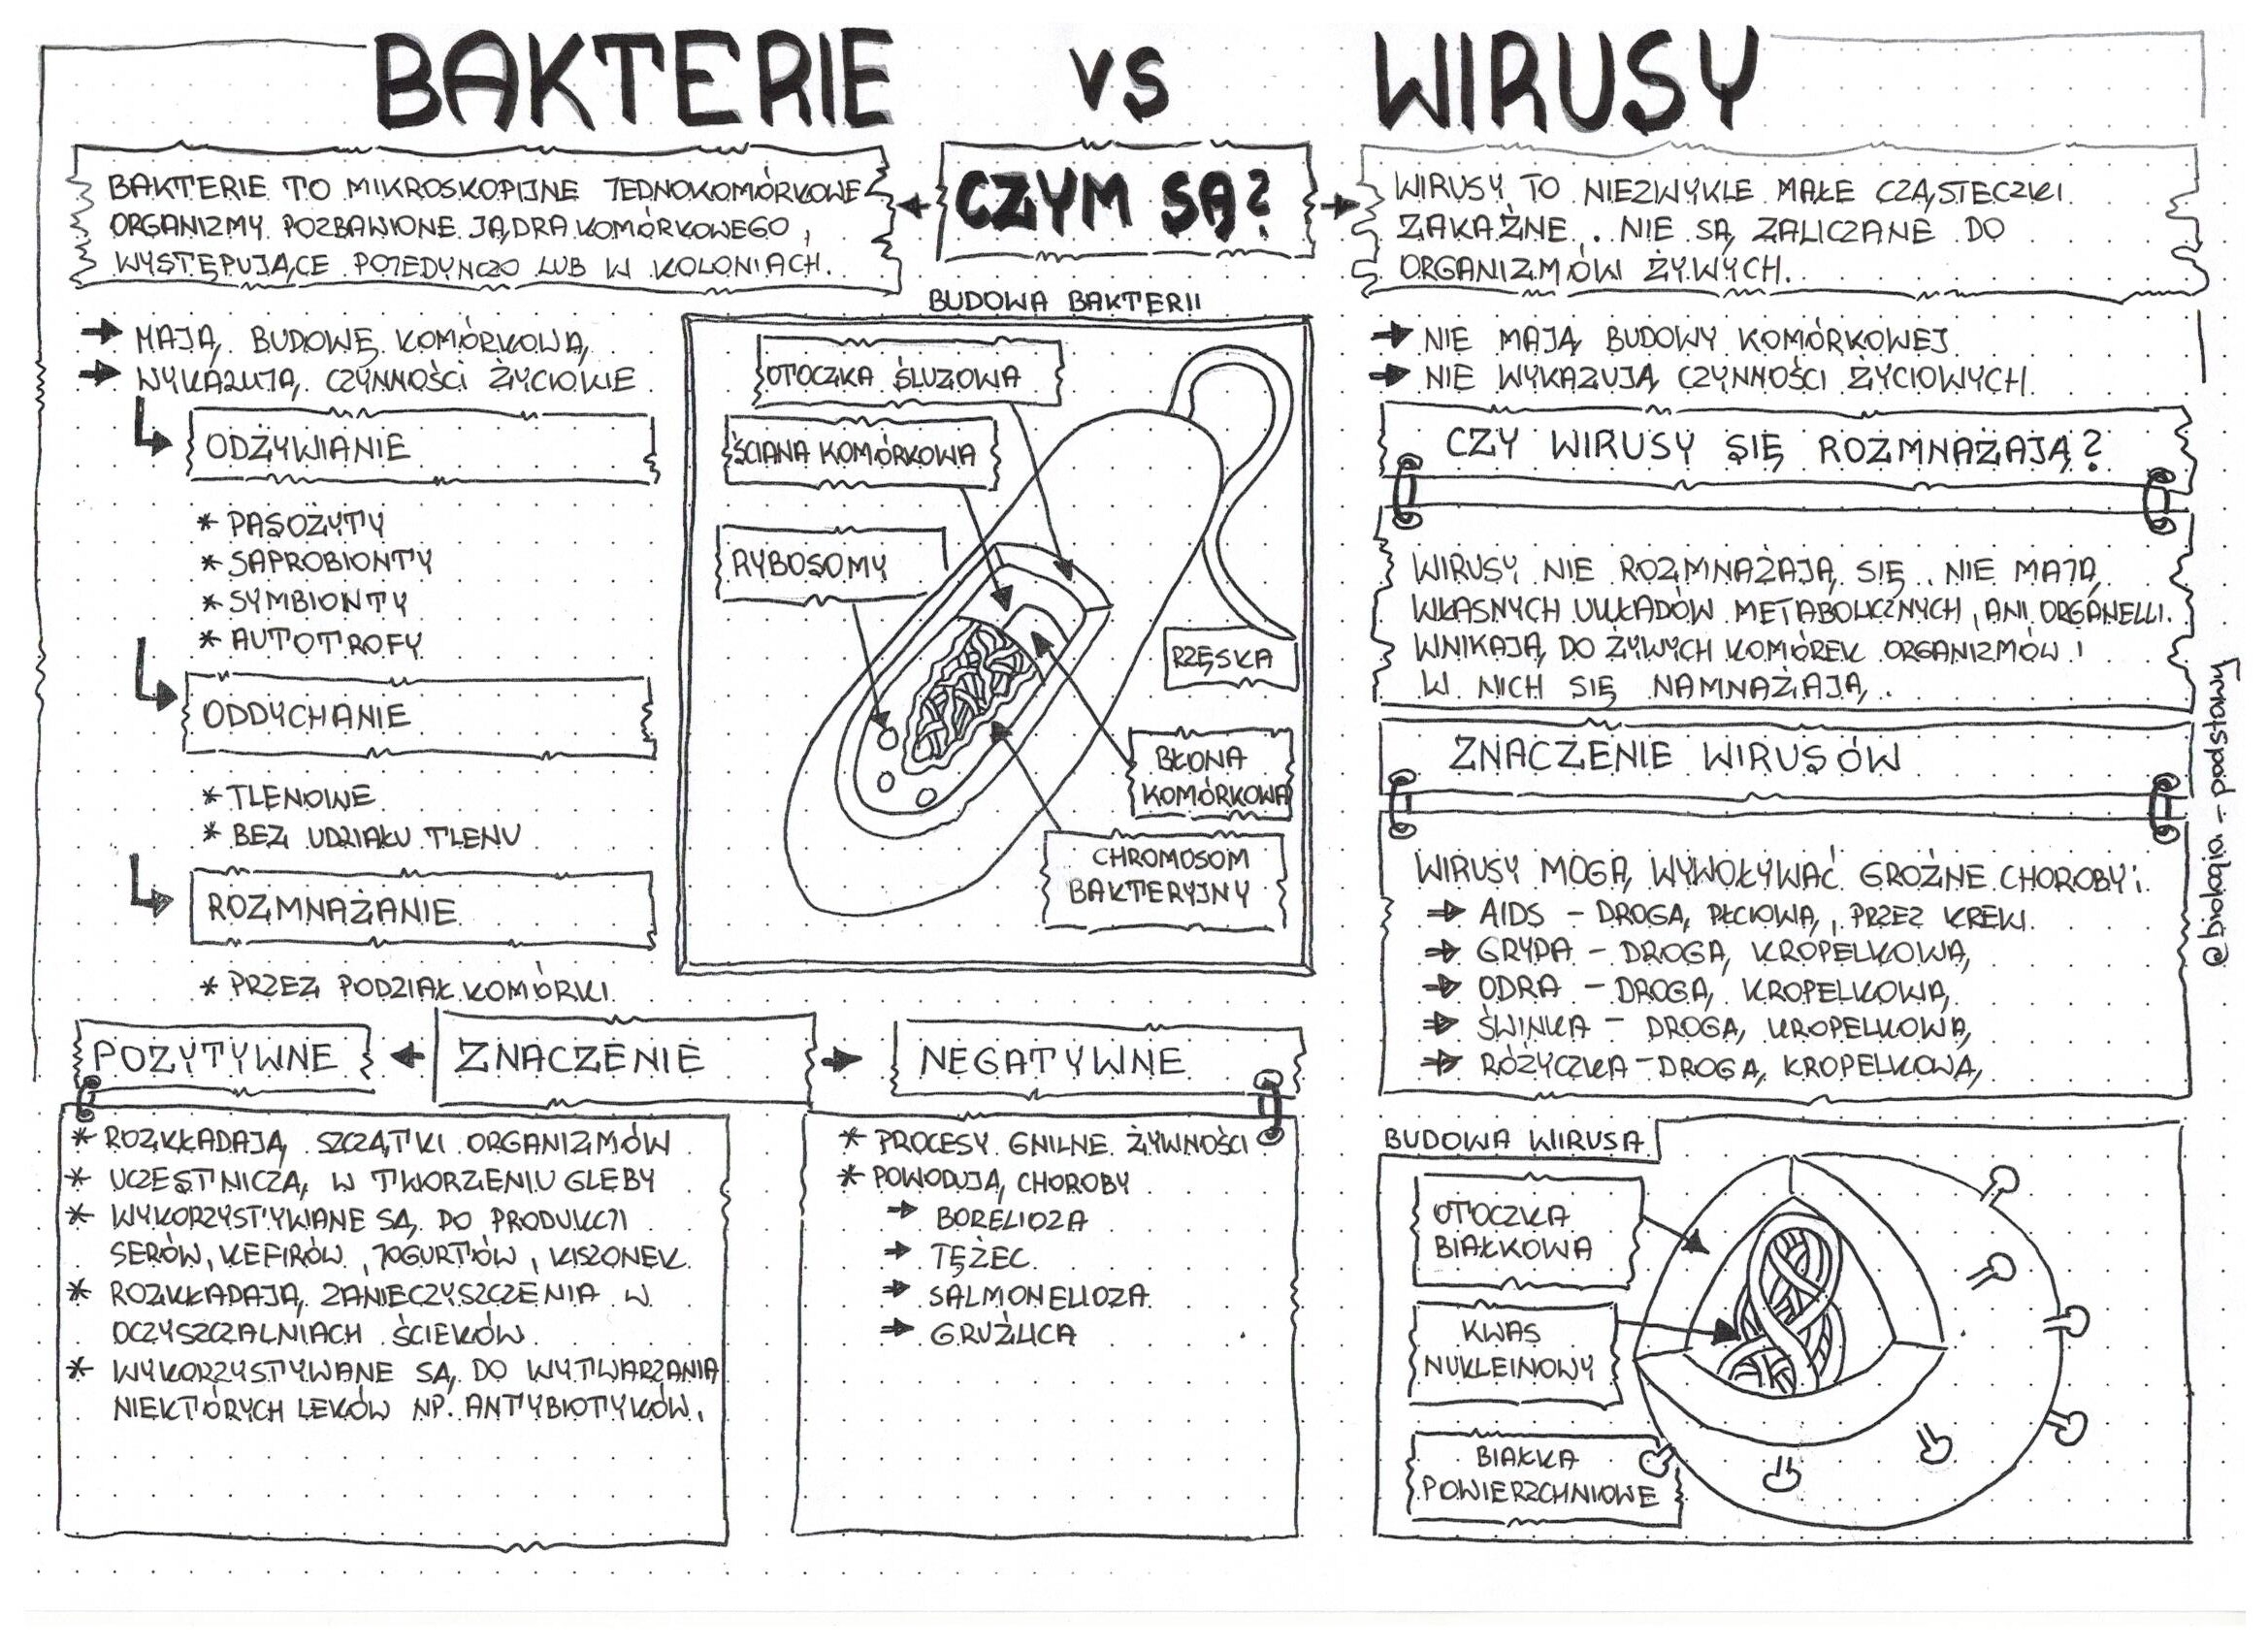 BAKTERIE VS WIRUSY
CZYM SĄ?
BAKTERIE TO MIKROSKOPIJNE JEDNOKOMÓRKOWE
ORGANIZMY POZBAWIONE JĄDRA KOMÓRKOWEGO,
WYSTĘPUJĄCE POJEDYNCZO LUB W KOLONIACH.
→ MAJĄ BUDOWĘ KOMÓRKOWĄ
→ WYKAZUJĄ CZYNNOŚCI ŻYCIOWE
ODŻYWIANIE
* PASOŻYTY
* SAPROBIONTY
* SYMBIONTY
* AUTOTROFY
ODDYCHANIE
* TLENOWE
* BEZ UDZIAŁU TLENU
ROZMNAŻANIE
* PRZEZ PODZIAŁ KOMÓRKI
BUDOWA BAKTERII
OTOCZKA ŚLUZOWA
ŚCIANA KOMÓRKOWA
RYBOSOMY
RZĘSKA
BŁONA
KOMÓRKOWA
CHROMOSOM
BAKTERYJNY
POZYTYWNE ← ZNACZENIE → NEGATYWNE
* ROZKŁADAJĄ SZCZĄTKI ORGANIZMÓW
* UCZESTNICZĄ W TWORZENIU GLEBY
* WYKORZYSTYWANE SĄ DO PRODUKCJI
SERÓW, KEFIRÓW, JOGURTÓW, KISZONEK.
* ROZKŁADAJĄ ZANIECZYSZCZENIA W
OCZYSZCZALNIACH ŚCIEKÓW
* WYKORZYSTYWANE SĄ DO WYTWARZANIA
NIEKTÓRYCH LEKÓW NP. ANTYBIOTYKÓW.
* PROCESY GNILNE ŻYWNOŚCI
* POWODUJĄ CHOROBY
→ BORELIOZA
→ TĘŻEC
→ SALMONELIOZA
→ GRUŹLICA
WIRUSY TO NIEZWYKLE MAŁE CZĄSTECZKI
ZAKAŹNE. NIE SĄ ZALICZANE DO
ORGANIZMÓW ŻYWYCH.
→ NIE MAJĄ BUDOWY KOMÓRKOWEJ
→ NIE WYKAZUJĄ CZYNNOŚCI ŻYCIOWYCH
CZY WIRUSY SIĘ ROZMNAŻAJĄ?
WIRUSY NIE ROZMNAŻAJĄ SIĘ. NIE MAJĄ
WŁASNYCH UKŁADÓW METABOLICZNYCH, ANI ORGANELLI.
WNIKAJĄ DO ŻYWYCH KOMÓREK ORGANIZMÓW I
W NICH SIĘ NAMNAŻAJĄ.
ZNACZENIE WIRUSÓW
WIRUSY MOGĄ WYWOŁYWAĆ GROŹNE CHOROBY:
→ AIDS – DROGĄ PŁCIOWĄ, PRZEZ KREW
→ GRYPA – DROGĄ KROPELKOWĄ
→ ODRA – DROGĄ KROPELKOWĄ
→ ŚWINKA – DROGĄ KROPELKOWĄ
→ RÓŻYCZKA – DROGĄ KROPELKOWĄ
BUDOWA WIRUSA
OTOCZKA
BIAŁKOWA
KWAS
NUKLEINOWY
BIAŁKA
POWIERZCHNIOWE
@biologia-podstawy